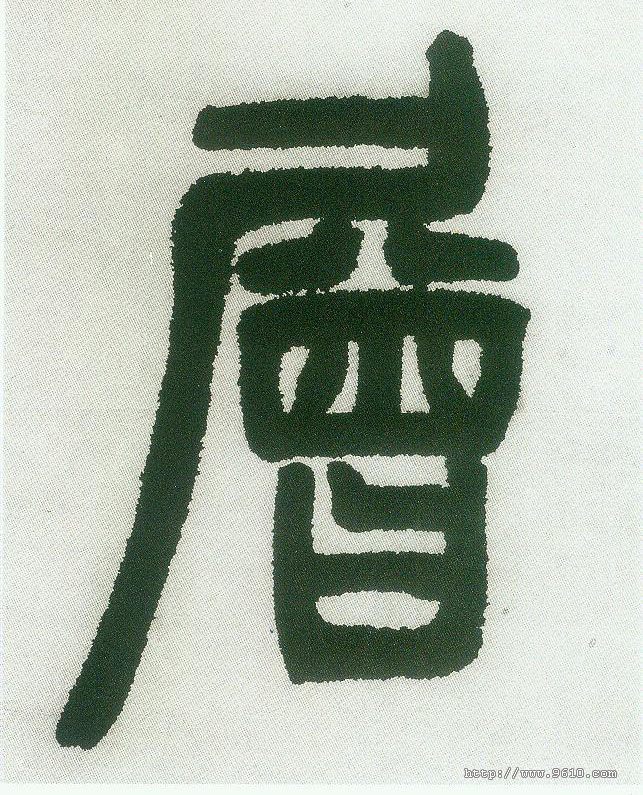 層
http://www.9610.com